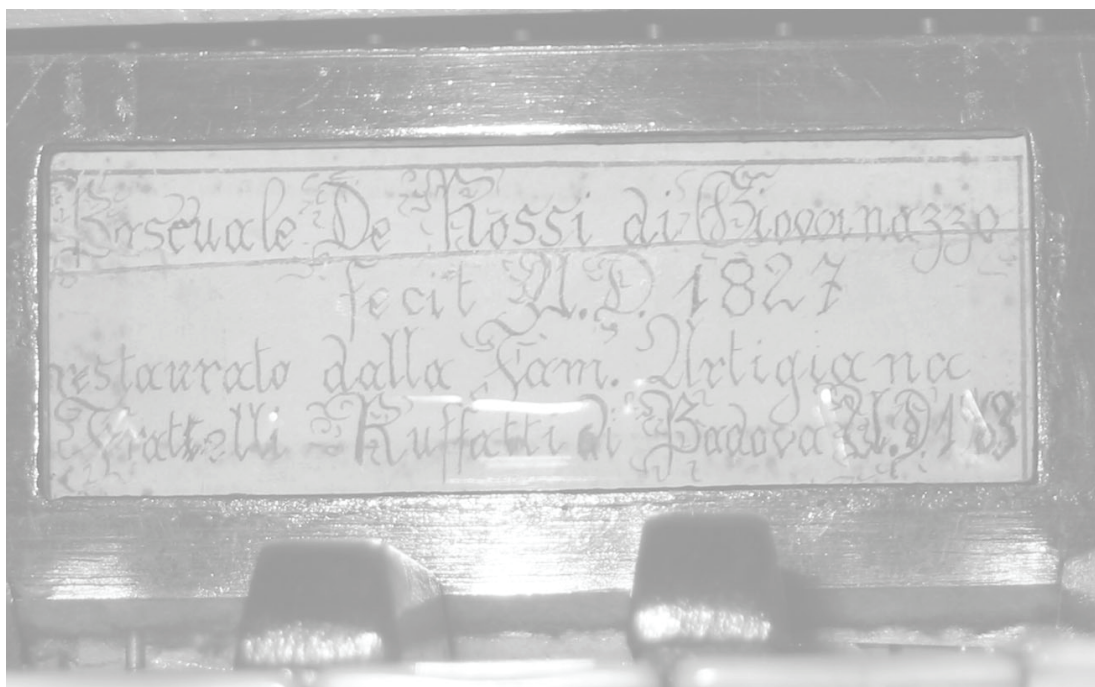 Pascuale De Rossi di Giovanazzo
fecit A.D. 1827
restaurato dalla Fam. Artigiana
Frattelli Ruffatti di Padova A.D.